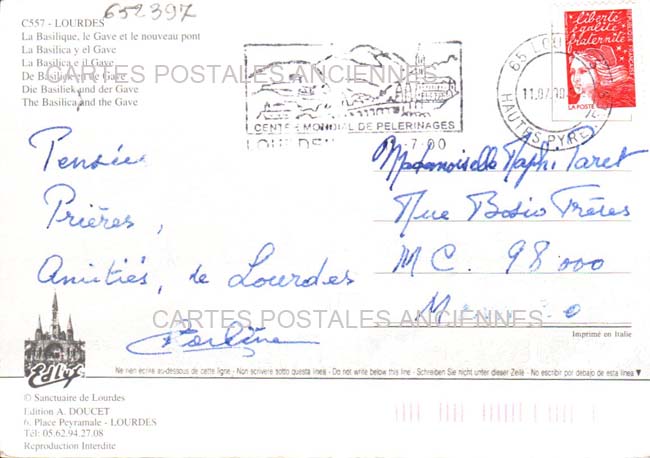 652397
C557 - LOURDES
La Basilique, le Gave et le nouveau pont
La Basilica y el Gave
La Basilica e il Gave
De Basiliek en de Gave
Die Basilick und der Gave
The Basilica and the Gave
CARTES POSTALES ANCIENNES
CENTRE MONDIAL DE PELERINAGES
LOURDES
-7-00
65 LOURDES
HAUTES PYR.
liberté
égalité
fraternité
LA POSTE
Pensées
Prières,
Amitiés, de Lourdes
Mademoiselle Taret
Rue Bosio Frères
MC. 98 000
Monaco
CARTES POSTALES ANCIENNES
Imprimé en Italie
Ne rien écrire au-dessous de cette ligne - Non scrivere sotto questa linea - Do not write below this line - Schreiben Sie nicht unter dieser Zeile - No escribir por debajo de esta linea
© Sanctuaire de Lourdes
Edition A. DOUCET
6, Place Peyramale - LOURDES
Tél: 05.62.94.27.08
Reproduction Interdite